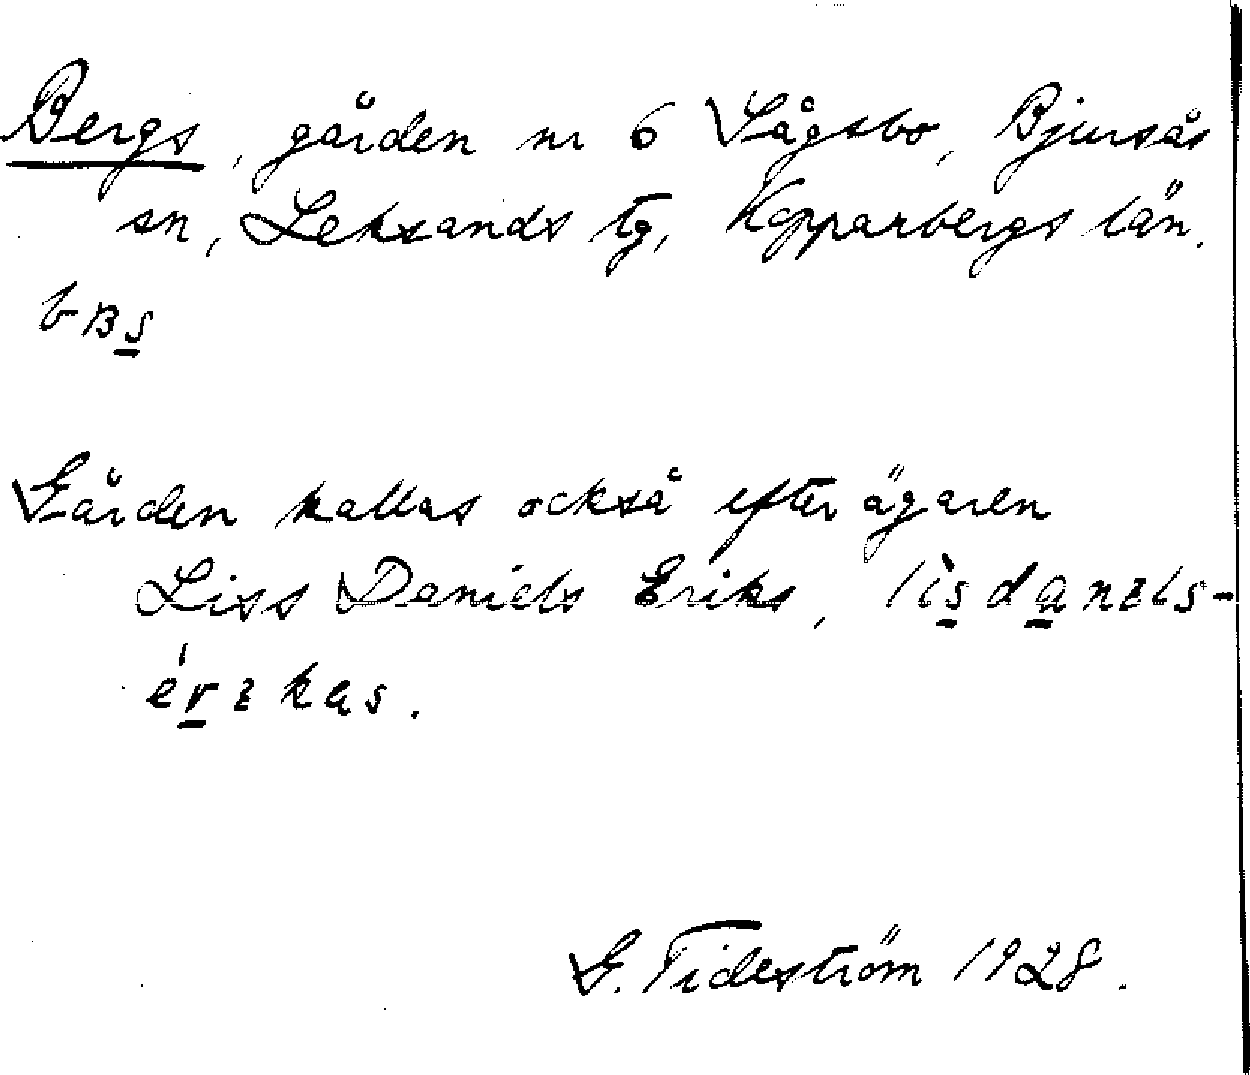 Bergs, gården nr 6 Sågsbo, Bjursås
sn, Leksands tg, Kopparbergs län.
Gården kallas också efter ägaren
Liss Daniels Eriks,
G. Tideström 1928.